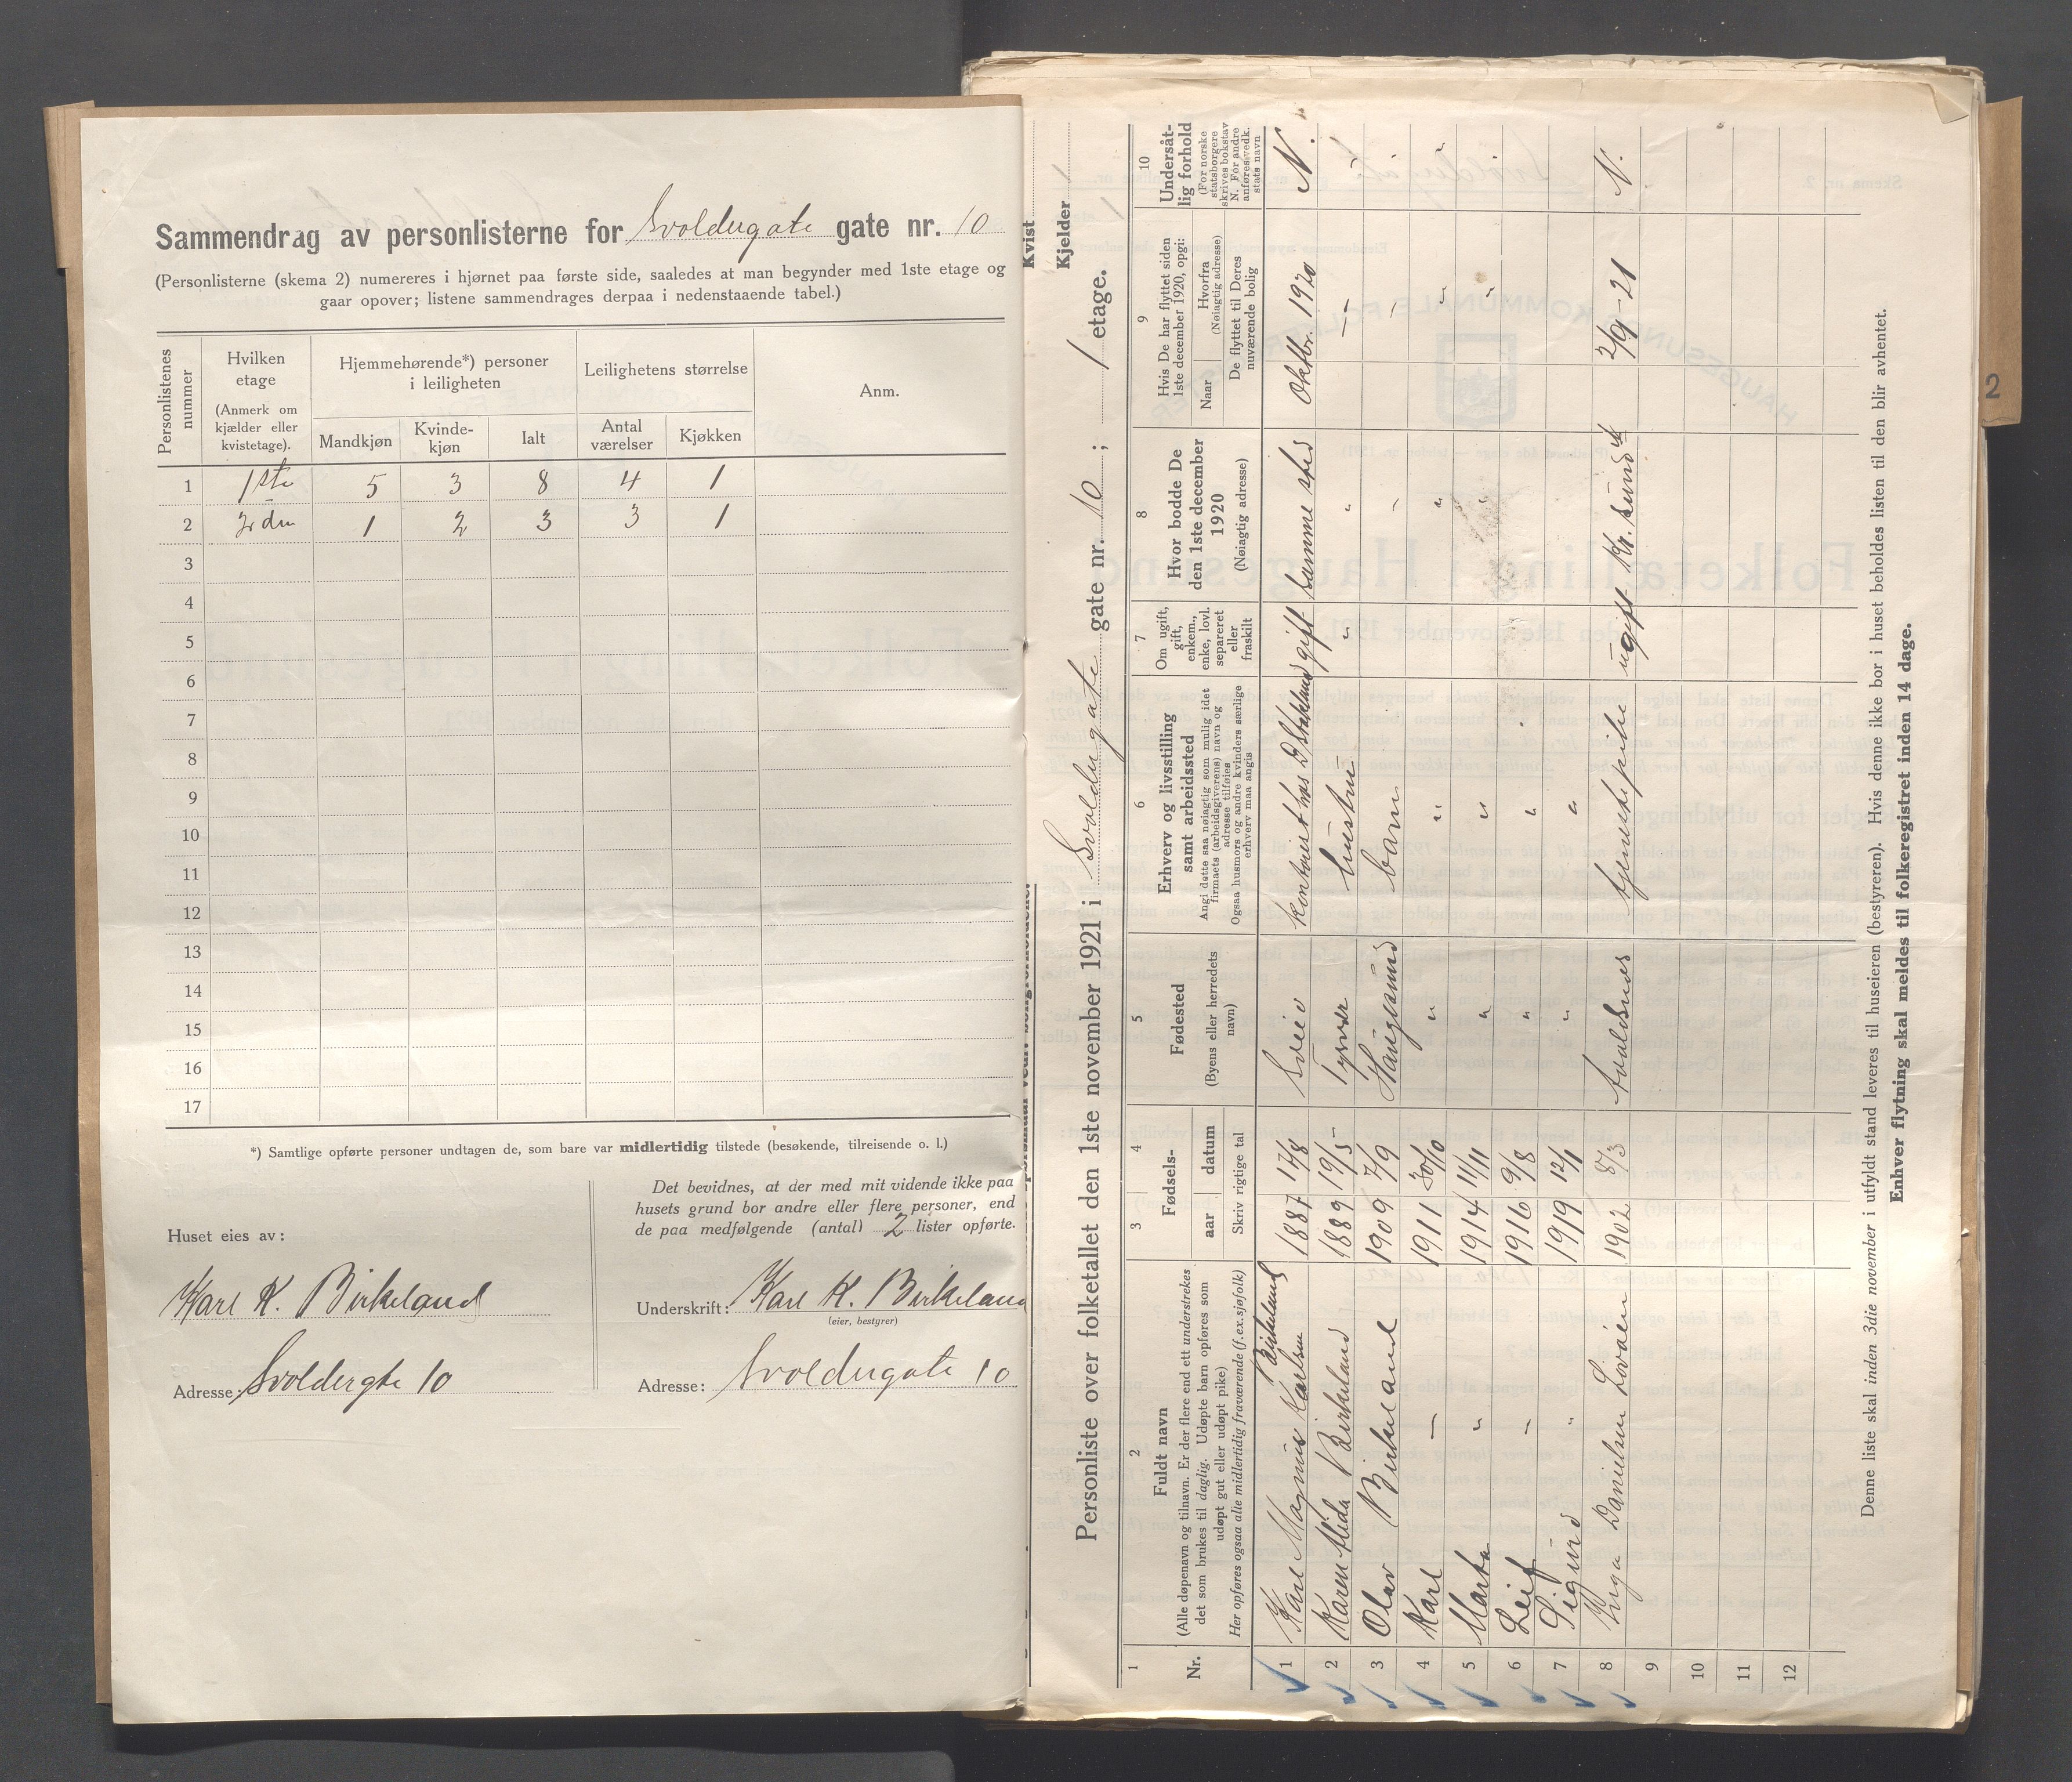 Sammendrag av personlisterne for Svoldergate gate nr. 10
(Personlisterne (skema 2) numereres i hjørnet paa første side, saaledes at man begynder med 1ste etage og
gaar opover; listene sammendrages derpaa i nedenstaaende tabel.)
Personlistenes nummer
Hvilken etage (Anmerk om kjælder eller kvistetage).
Hjemmehørende*) personer i leiligheten
Leilighetens størrelse
Anm.
Mandkjøn Kvinde-kjøn Ialt Antal værelser Kjøkken
1 1ste 5 3 8 4 1
2 2den 1 2 3 3 1
3
4
5
6
7
8
9
10
11
12
13
14
15
16
17
*) Samtlige opførte personer undtagen de, som bare var midlertidig tilstede (besøkende, tilreisende o. l.)
Huset eies av:
Karl K. Birkeland
Adresse: Svoldergte 10
Det bevidnes, at der med mit vidende ikke paa
husets grund bor andre eller flere personer, end
de paa medfølgende (antal) 2 lister opførte.
Underskrift: Karl K. Birkeland
(eier, bestyrer)
Adresse: Svoldergate 10
Kvist
Kjelder
Personliste over folketallet den 1ste november 1921 i Svoldergate gate nr. 10 ; 1 etage.
1 2 3 4 5 6 7 8 9 10
Nr.
Fuldt navn
(Alle døpenavn og tilnavn. Er der flere end ett understrekes
det som brukes til daglig. Udøpte barn opføres som
udøpt gut eller udøpt pike)
Her opføres ogsaa alle midlertidig fraværende (f.ex. sjøfolk)
Fødsels-
aar datum
Skriv rigtige tal
Fødested
(Byens eller herredets navn)
Erhverv og livsstilling
samt arbeidssted
Angi dette saa nøiagtig som mulig idet
firmaets (arbeidsgiverens) navn og
adresse tilføies
Ogsaa husmors og andre kvinders særlige
erhverv maa angis
Om ugift,
gift,
enkem.,
enke, lovl.
separeret
eller
fraskilt
Hvor bodde De
den 1ste december
1920
(Nøiagtig adresse)
Hvis De har flyttet siden
1ste december 1920, opgi:
Naar
Hvorfra
(Nøiagtig adresse)
De flyttet til Deres
nuværende bolig
Undersåt-
lig forhold
(For norske
statsborgere
skrives bokstav
N. For andre
anføres vedk.
stats navn
1 Karl Magnus Karlsen Birkeland 1887 17/8 Sveio kontorist hos gift samme sted Oktbr. 1920 N.
2 Karen Birkeland 1889 19/5 Tysvær hustru " " — "
3 Olav Birkeland 1909 7/9 Haugesund barn
4 Karl — 1911 30/10 " " " " "
5 Marta " 1914 11/11 " " " " "
6 Leif — 1916 9/8 " "
7 Sigurd " 1919 12/1 " "
8 Inga Danielsen 1902 8/3 Avaldsnes tjenestepike ugift Kr. sund 2/9-21 N.
9
10
11
12
Denne liste skal inden 3die november i utfyldt stand leveres til huseieren (bestyreren). Hvis denne ikke bor i huset beholdes listen til den blir avhentet.
Enhver flytning skal meldes til folkeregistret inden 14 dage.
2